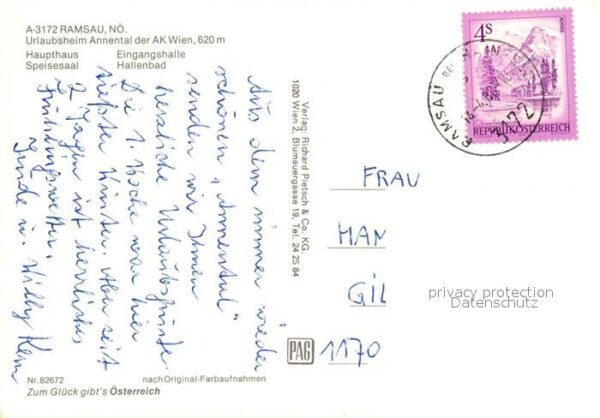 A-3172 RAMSAU, NÖ.
Urlaubsheim Annental der AK Wien, 620 m
Haupthaus Eingangshalle
Speisesaal Hallenbad
Aus dem immer wieder
schönen „Annental"
senden wir Ihnen
herzliche Urlaubsgrüße.
Die 1. Woche war hier
tiefster Winter. Aber seit
2 Tagen ist herrliches
Frühlingswetter.
u. Willy
Nr. 82672 nach Original-Farbaufnahmen
Zum Glück gibt's Österreich
Verlag: Richard Pietsch & Co. KG.
1020 Wien 2, Blumauergasse 19, Tel. 24 25 84
PAG
4S
REPUBLIK ÖSTERREICH
RAMSAU BEI
3172
FRAU
HAN
GIL
1170
privacy protection
Datenschutz